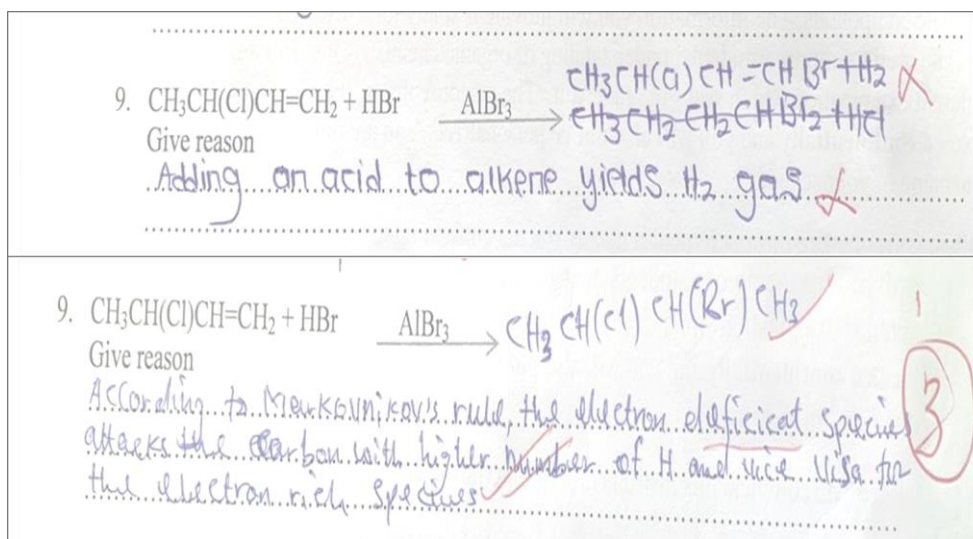 9. CH₃CH(Cl)CH=CH₂ + HBr
AlBr₃
CH3CH(Cl) CH =CH Br+H2
CH3 CH2 CH2 CHBr2 +HCl
Give reason
Adding an acid to alkene yields H2 gas
9. CH₃CH(Cl)CH=CH₂ + HBr
AlBr₃
CH3 CH(Cl) CH(Br) CH3
Give reason
According to Markovnikov's rule, the electron deficicat species
attacks the carbon with higher number of H and vice visa for
the electron rich species
3